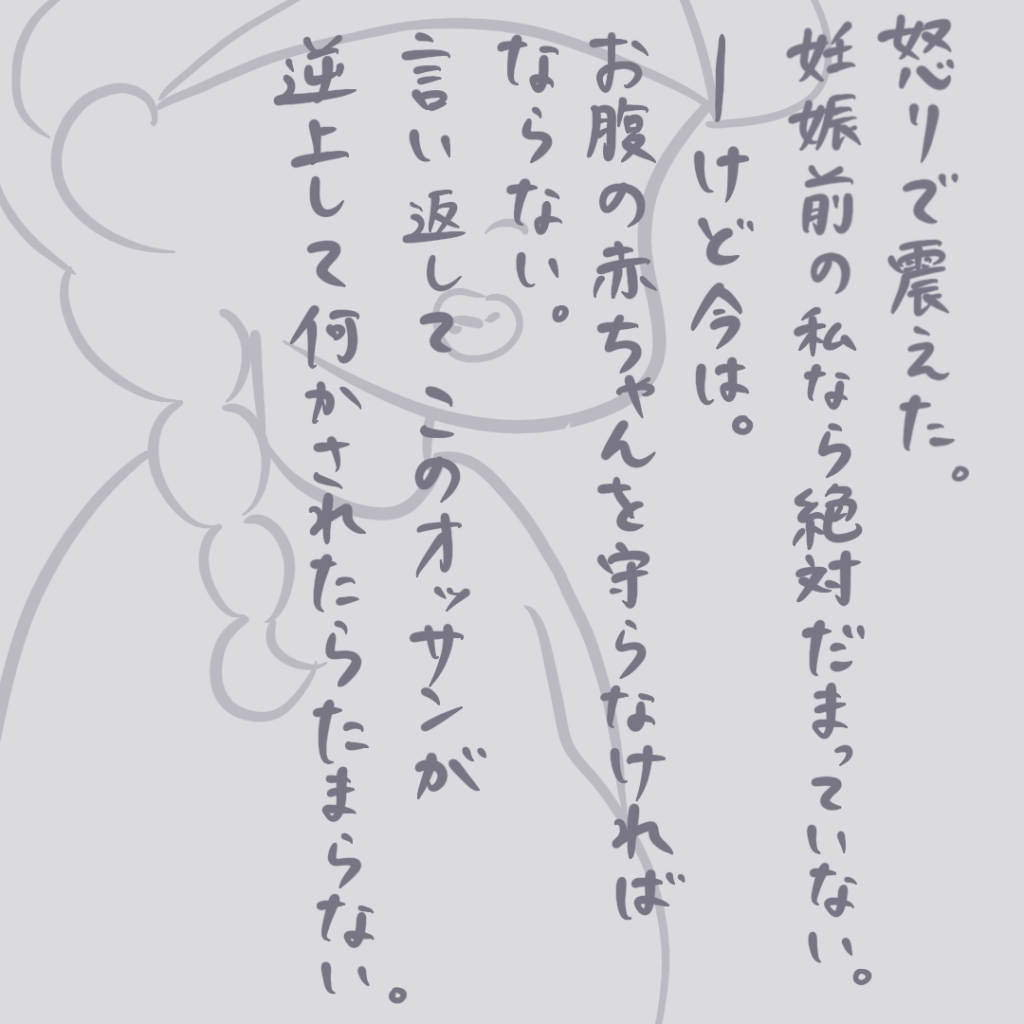 怒りで震えた。
妊娠前の私なら絶対だまっていない。
―けど今は。
お腹の赤ちゃんを守らなければ
ならない。
言い返してこのオッサンが
逆上して何かされたらたまらない。